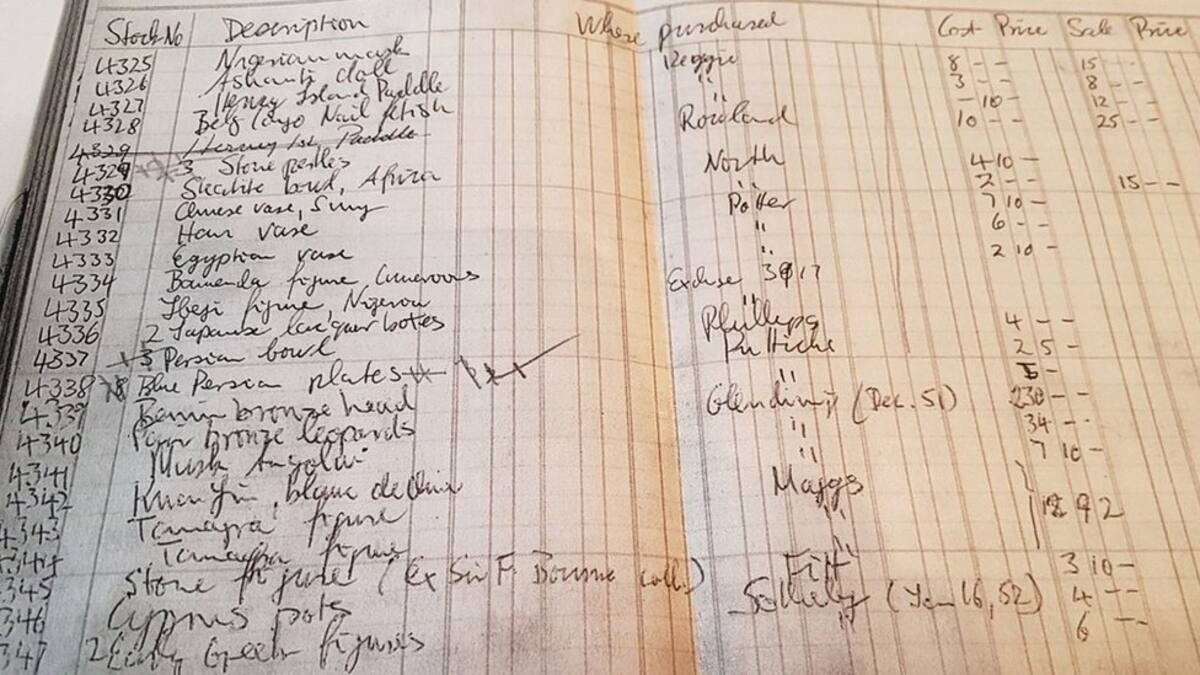 Stock No Description Where purchased Cost Price Sale Price
4325 Nigerian mask Reggie 8 - - 15 - -
4326 Ashanti doll " 3 - - 8 - -
4327 Hervey Island Paddle " - 10 - 12 - -
4328 Belg Congo Nail fetish Rowland 10 - - 25 - -
4329 Hervey Isl. Paddle
4329 3 Stone pestles North 4 10 -
4330 Steatite bowl, Africa " 2 - - 15 - -
4331 Chinese vase, Sung Potter 7 10 -
4332 Han vase " 6 - -
4333 Egyptian vase " 2 10 -
4334 Bamenda figure Cameroons 3917
4335 Ibeji figure, Nigeria "
4336 2 Japanese lacquer boxes Phillips 4 - -
4337 3 Persian bowl Puttick 2 5 -
4338 8 Blue Persian plates " 5 -
4339 Benin bronze head Glendining (Dec. 51) 230 - -
4340 Pair bronze leopards " 34 - -
4341 Mask Angola " 7 10 -
4342 Kuan Yin, blanc de chine Maggs
4343 Tanagra figure " 18 9 2
4344 Tanagra figure "
4345 Stone figure (ex Sir F. Bourne coll.) 3 10 -
4346 Cyprus pots Sotheby (Jan 16, 52) 4 - -
4347 2 Early Greek figures " 6 - -